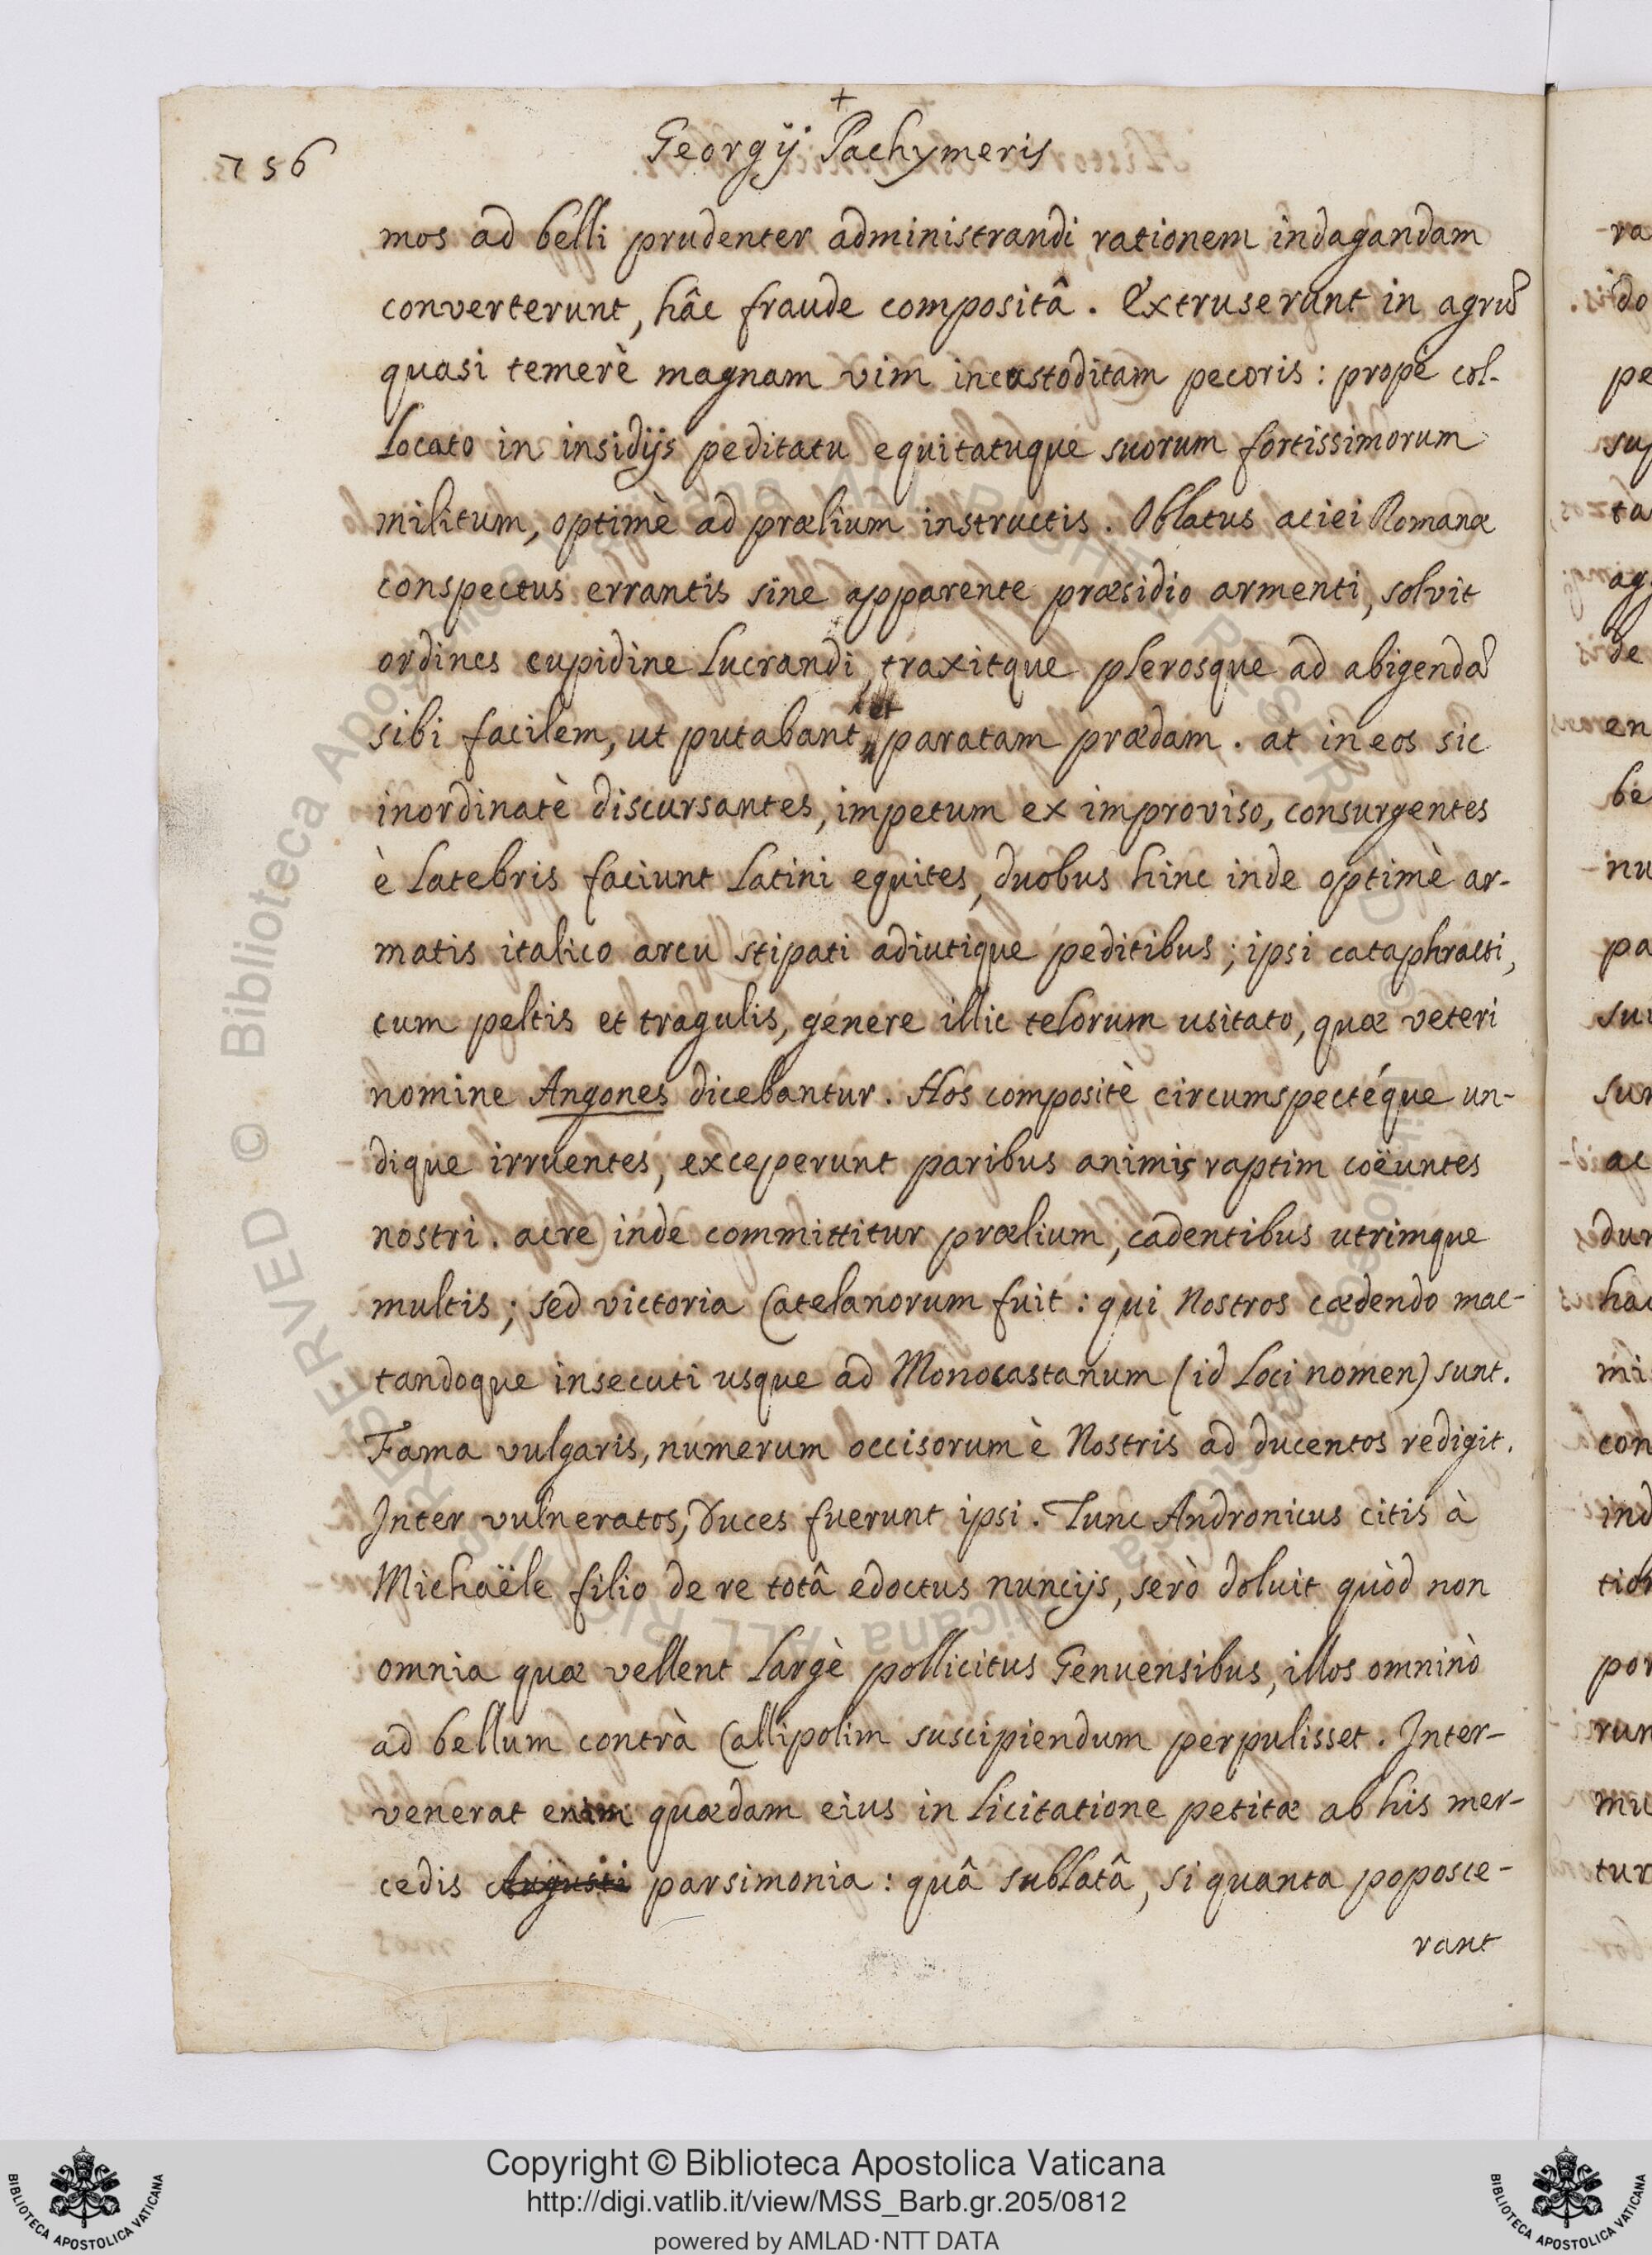 +
756 Georgij Pachymeris
mos ad belli prudenter administrandi rationem indagandam
converterunt, hâc fraude compositâ. Extruserunt in agrũ
quasi temerè magnam vim incustoditam pecoris: propè col-
locato in insidijs peditatu equitatuque suorum fortissimorum
militum, optimè ad prælium instructis. Oblatus aciei Romanæ
conspectus errantis sine apparente præsidio armenti, solvit
ordines cupidine lucrandi, traxitque plerosque ad abigendã
sibi facilem, ut putabant, et paratam prædam. at in eos sic
inordinatè discursantes, impetum ex improviso, consurgentes
è latebris faciunt Latini equites, duobus hinc inde optimè ar-
matis italico arcu stipati adiutique peditibus; ipsi cataphracti,
cum peltis et tragulis, genere illic telorum usitato, quæ veteri
nomine Angones dicebantur. Hos compositè circumspectéque un-
dique irruentes, exceperunt paribus animis raptim coëuntes
nostri. acre inde committitur prælium, cadentibus utrimque
multis; sed victoria Catelanorum fuit: qui Nostros cædendo mac-
tandoque insecuti usque ad Monocastanum (id loci nomen) sunt.
Fama vulgaris, numerum occisorum è Nostris ad ducentos redigit.
Inter vulneratos, Duces fuerunt ipsi. Tunc Andronicus citis à
Michaële filio de re totâ edoctus nuncijs, serò doluit quòd non
omnia quæ vellent largè pollicitus Genuensibus, illos omninò
ad bellum contrà Callipolim suscipiendum perpulisset. Inter-
venerat enim quædam eius in licitatione petitæ ab his mer-
cedis Augusti parsimonia: quâ sublatâ, si quanta poposce-
rant
ra
do
pe
sup
ta
ag
de
en
be
nu
pa
sui
sun
ac
dur
hac
mi
con
ind
tion
por
run
mu
tur
© Biblioteca Apostolica Vaticana ALL RIGHTS RESERVED
Copyright © Biblioteca Apostolica Vaticana
http://digi.vatlib.it/view/MSS_Barb.gr.205/0812
powered by AMLAD·NTT DATA
BIBLIOTECA APOSTOLICA VATICANA
BIBLIOTECA APOSTOLICA VATICANA